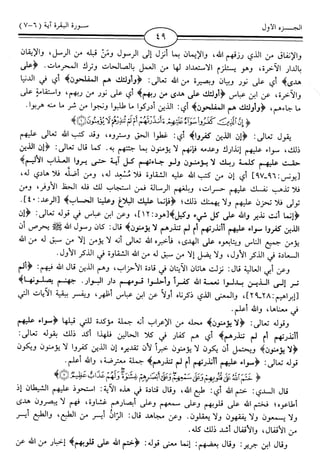 الجــزء الأول
٤٩
سورة البقرة آية (٦-٧)
والإنفاق من الذي رزقهم الله، والإيمان بما أنزل إلى الرسول ومن قبله من الرسل، والإيقان
بالدار الآخرة، وهو يستلزم الاستعداد لها من العمل بالصالحات وترك المحرمات. ﴿على
هدى﴾ أي على نور وبيان وبصيرة من الله تعالى: ﴿وأولئك هم المفلحون﴾ أي في الدنيا
والآخرة، عن ابن عباس ﴿أولئك على هدى من ربهم﴾ أي على نور من ربهم، واستقامة على
ما جاءهم، ﴿وأولئك هم المفلحون﴾ أي: الذين أدركوا ما طلبوا ونجوا من شر ما منه هربوا.
﴿إن الذين كفروا سواء عليهم ءأنذرتهم أم لم تنذرهم لا يؤمنون﴾
يقول تعالى: ﴿إن الذين كفروا﴾ أي: غطوا الحق وستروه، وقد كتب الله تعالى عليهم
ذلك، سواء عليهم إنذارك وعدمه فإنهم لا يؤمنون بما جئتهم به. كما قال تعالى: ﴿إن الذين
حقت عليهم كلمة ربك لا يؤمنون ولو جاءتهم كل آية حتى يروا العذاب الأليم﴾
[٩٦،٩٧] أي إن من كتب الله عليه الشقاوة فلا مُسعِد له، ومن أضلَّه فلا هادي له،
فلا تذهب نفسك عليهم حسرات، وبلغهم الرسالة فمن استجاب لك فله الحظ الأوفر، ومن
تولى فلا تحزن عليهم ولا يهمنك ذلك، ﴿فإنما عليك البلاغ وعلينا الحساب﴾ [الرعد: ٤٠].
﴿إنما أنت نذير والله على كل شيء وكيل﴾ [هود: ١٢]، وعن ابن عباس في قوله تعالى: ﴿إن
الذين كفروا سواء عليهم أأنذرتهم أم لم تنذرهم لا يؤمنون﴾ قال: كان رسول الله ﷺ يحرص أن
يؤمن جميع الناس ويتابعوه على الهدى، فأخبره الله تعالى أنه لا يؤمن إلا من سبق له من الله
السعادة في الذكر الأول، ولا يضل إلا من سبق له من الله الشقاوة في الذكر الأول.
وعن أبي العالية قال: نزلت هاتان الآيتان في قادة الأحزاب، وهم الذين قال الله فيهم: ﴿ألم
تر إلى الذين بدلوا نعمة الله كفراً وأحلوا قومهم دار البوار. جهنم يصلونها﴾
[إبراهيم: ٢٨،٢٩]، والمعنى الذي ذكرناه أولاً عن ابن عباس أظهر، ويفسر ببقية الآيات التي
في معناها، والله أعلم.
وقوله تعالى: ﴿لا يؤمنون﴾ محله من الإعراب أنه جملة مؤكدة للتي قبلها ﴿سواء عليهم
أأنذرتهم أم لم تنذرهم﴾ أي هم كفار في كلا الحالين فلهذا أكد ذلك بقوله تعالى:
﴿لا يؤمنون﴾ ويحتمل أن يكون لا يؤمنون خبراً لأن تقديره إن الذين كفروا لا يؤمنون ويكون
قوله تعالى: ﴿سواء عليهم أأنذرتهم أم لم تنذرهم﴾ جملة معترضة، والله أعلم.
﴿ختم الله على قلوبهم وعلى سمعهم وعلى أبصارهم غشاوة ولهم عذاب عظيم﴾
قال السدي: ختم الله أي: طبع الله، وقال قتادة في هذه الآية: استحوذ عليهم الشيطان إذ
أطاعوه؛ فختم الله على قلوبهم وعلى سمعهم وعلى أبصارهم غشاوة، فهم لا يبصرون هدى
ولا يسمعون ولا يفقهون ولا يعقلون. وعن مجاهد قال: الرّانُ أيسر من الطبع، والطبع أيسر
من الأقفال، والأقفال أشد ذلك كله.
وقال ابن جرير: وقال بعضهم: إنما معنى قوله: ﴿ختم الله على قلوبهم﴾ إخبار من الله عن